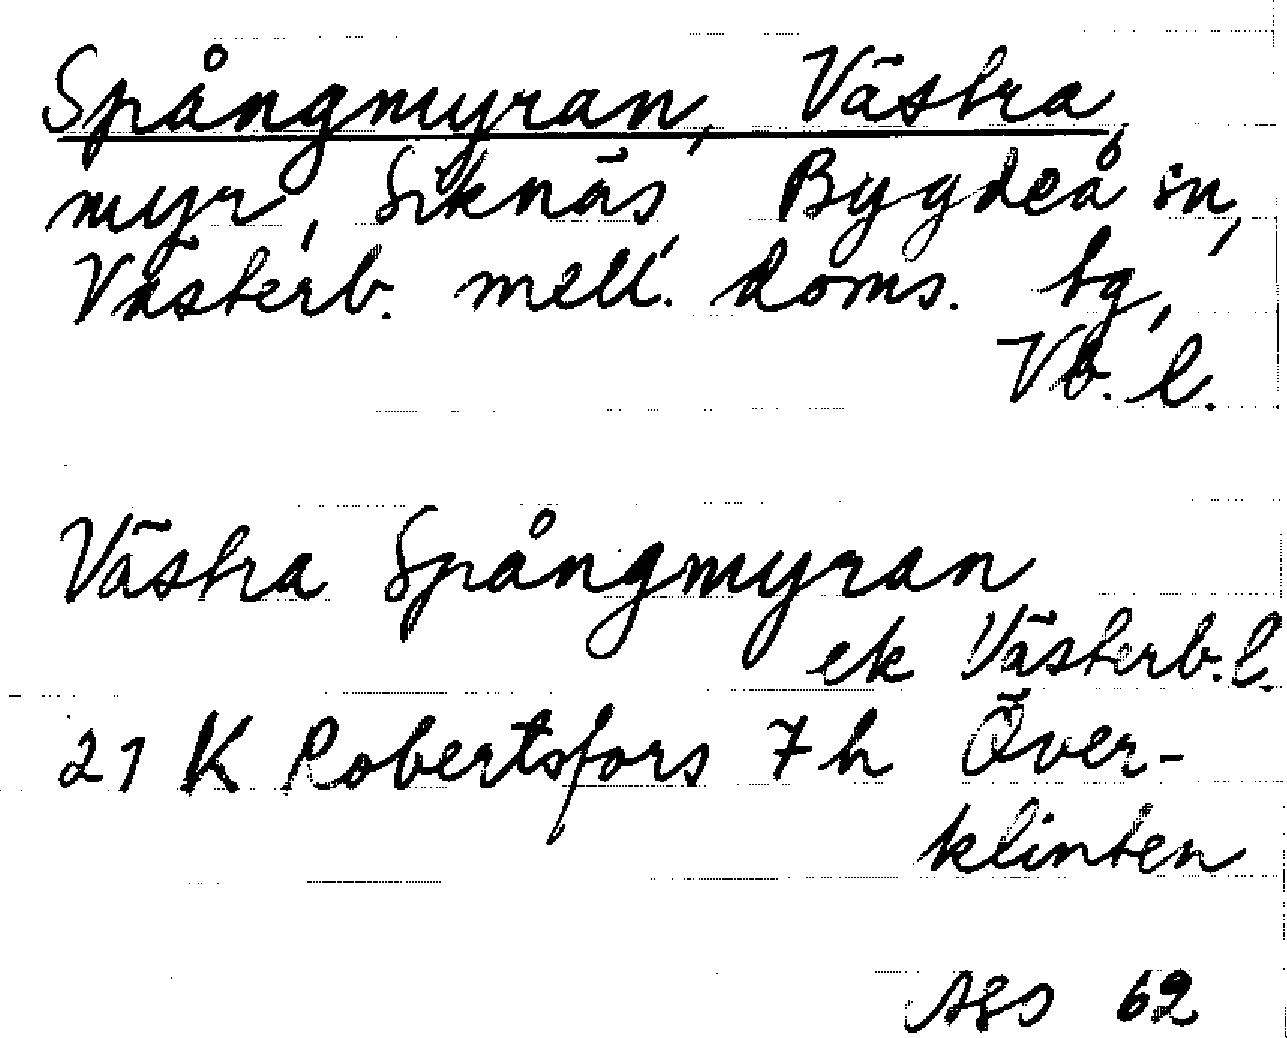 Spångmyran, Västra,
myr, Siknäs, Bygdeå sn,
Västerb. mell. doms. tg,
Vb. l.
Västra Spångmyran
ek Västerb. l.
21 K Robertsfors 7 h Över-
klinten
62